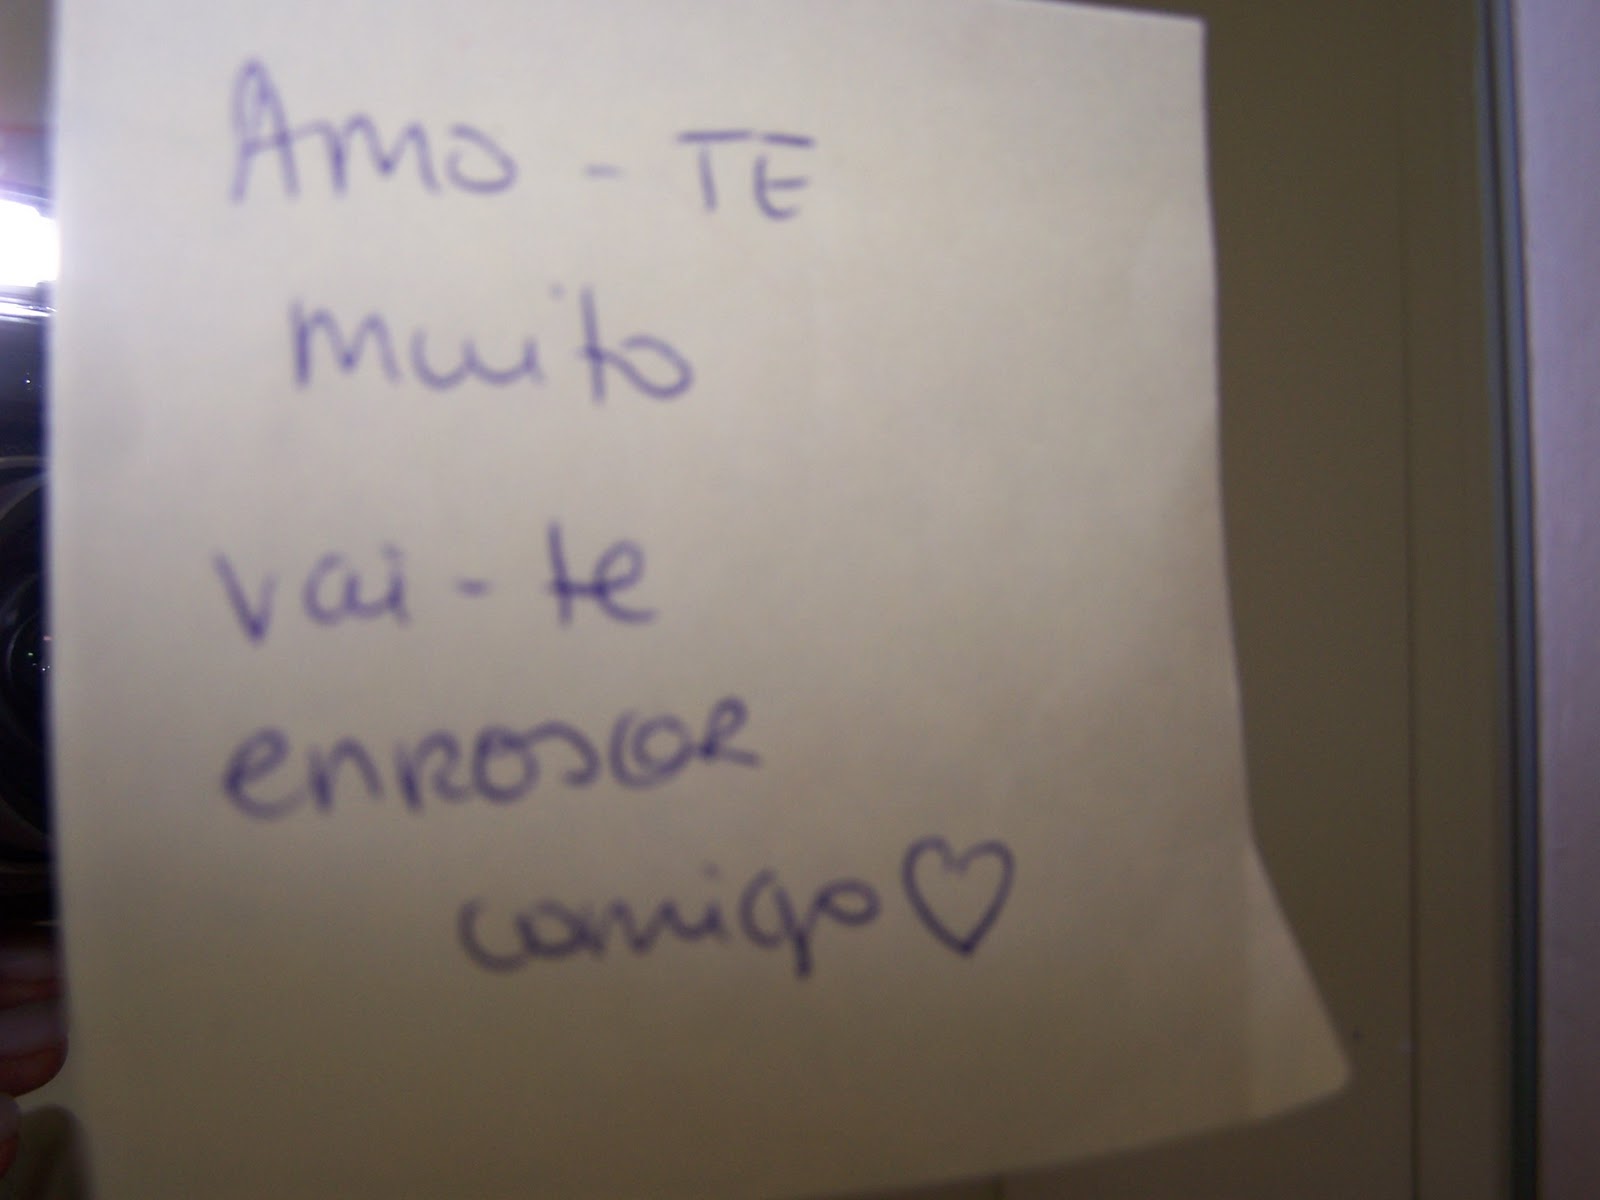 Amo - TE
muito
vai - te
enroscar
comigo ♡